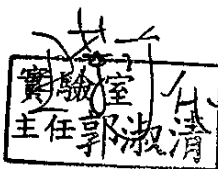 實驗室
主任郭淑清